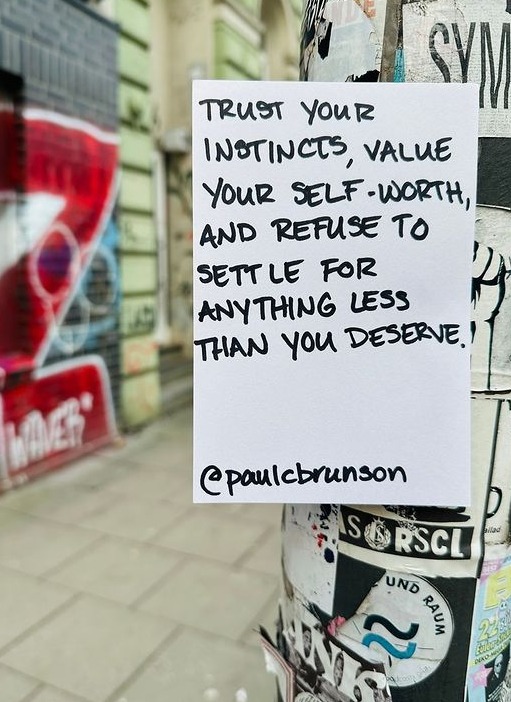 SYM
TRUST YOUR
INSTINCTS, VALUE
YOUR SELF-WORTH,
AND REFUSE TO
SETTLE FOR
ANYTHING LESS
THAN YOU DESERVE.
@paulcbrunson
WAVER"
RSCL
UND RAUM
INK